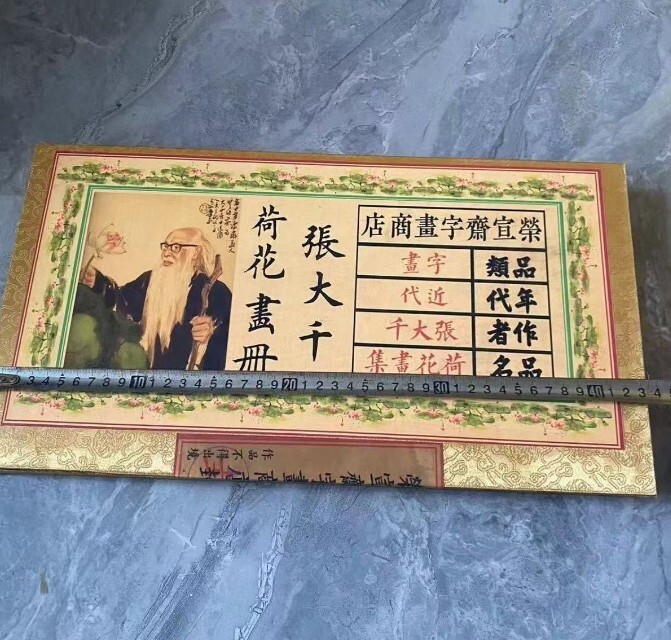 榮宣齋字畫商店
品類 字畫
年代 近代
作者 張大千
品名 荷花畫集
張大千
荷花畫冊
作品不得出境
3 4 5 6 7 8 9 10 1 2 3 4 5 6 7 8 9 20 1 2 3 4 5 6 7 8 9 30 1 2 3 4 5 6 7 8 9 40 1 2 3 4